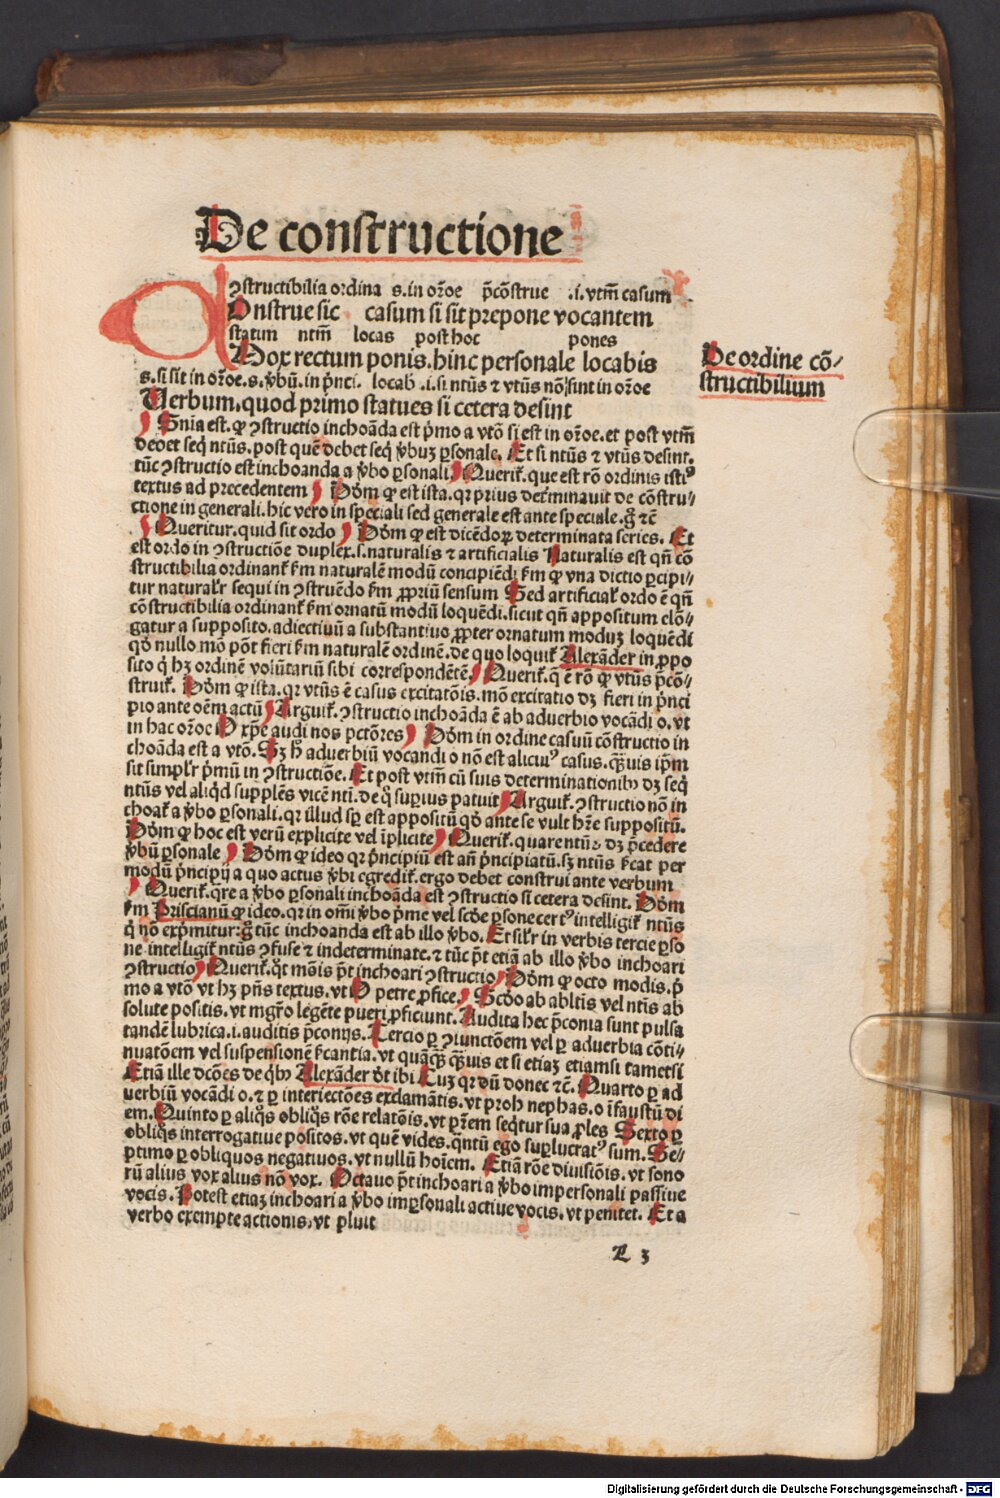 De constructione
ꝯstructibilia ordina s. in or̄oe p̄cōstrue .i. vtm̄ casum
Onstrue sic casum si sit prepone vocantem
statun ntm̄ locas post hoc pones
Mox rectum ponis. hinc personale locabis
s. si sit in or̄oe. s. v̄bū. in pͥnci. locab .i. si ntūs ⁊ vtūs nō sint in or̄oe
Uerbum. quod primo statues si cetera desint
De ordine cō⸗
structibilium
Snīa est. ꝙ ꝯstructio inchoāda est pͥmo a vtō si est in or̄oe. et post vtm̄
debet seqͥ ntūs. post quē debet seqͥ v̄buꝫ ꝑsonale. Et si ntūs ⁊ vtūs desint.
tūc ꝯstructio est inchoanda a v̄bo ꝑsonali Querit̄. que est rō ordinis istiꝰ
textus ad precedentem Dōm ꝙ est ista. qꝛ prius det̄minauit de cōstru⸗
ctione in generali. hic vero in speciali sed generale est ante speciale. gͦ ⁊c̄
Queritur. quid sit ordo Dōm ꝙ est dicēdoꝝ determinata series. Et
est ordo in ꝯstructiōe duplex. s. naturalis ⁊ artificialis Naturalis est qn̄ cō
structibilia ordinant̄ ẜm naturalē modū concipiēdi ẜm ꝙ vna dictio ꝑcipi⸗
tur naturalr̄ sequi in ꝯstruēdo ẜm ꝓpriū sensum Sed artificial̄ ordo ē qn̄
cōstructibilia ordinant̄ ẜm ornatū modū loquēdi. sicut qn̄ appositum elō⸗
gatur a supposito. adiectiuū a substantiuo ꝓpter ornatum moduꝫ loquēdi
qd̄ nullo mō pōt fieri ẜm naturalē ordinē. de quo loquit̄ Alexāder in ꝓpo
sito qͥ hꝫ ordinē volūtariū sibi correspondētē Querit̄. q̄ ē rō ꝙ vtūs p̄cō⸗
struit̄. Dōm ꝙ ista. qꝛ vtūs ē casus excitatōis. mō excitatio dꝫ fieri in pͥnci
pio ante oēm actū Arguit̄. ꝯstructio inchoāda ē ab aduerbio vocādi o. vt
in hac or̄oe O xp̄e audi nos pctōres Dōm in ordine casuū cōstructio in
choāda est a vtō. Sꝫ h̄ aduerbiū vocandi o nō est alicuiꝰ casus. qͣuis ip̄m
sit simplr̄ pͥmū in ꝯstructiōe. Et post vtm̄ cū suis determinationibꝫ dꝫ seqͥ
ntūs vel aliqͥd supplēs vicē nti. de qͦ suꝑius patuit Arguit̄. ꝯstructio nō in
choat̄ a v̄bo ꝑsonali. qꝛ illud sꝑ est appositū qd̄ ante se vult hr̄e suppositū.
Dōm ꝙ hoc est verū explicite vel īplicite Querit̄. quare ntūs dꝫ p̄cedere
v̄bū ꝑsonale Dōm ꝙ ideo qꝛ pͥncipiū est an̄ pͥncipiatū. sꝫ ntūs ẜcat per
modū pͥncipij a quo actus v̄bi egredit̄. ergo debet construi ante verbum
Querit̄. qͣre a v̄bo ꝑsonali inchoāda est ꝯstructio si cetera desint. Dōm
ẜm Priscianū ꝙ ideo. qꝛ in om̄i v̄bo pͥme vel scd̄e ꝑsone certꝰ intelligit̄ ntūs
qͥ nō expͥmitur: gͦ tūc inchoanda est ab illo v̄bo. Et silr̄ in verbis tercie ꝑso
ne intelligit̄ ntūs ꝯfuse ⁊ indeterminate. ⁊ tūc pōt etiā ab illo v̄bo inchoari
ꝯstructio Querit̄. qͦt mōis pōt inchoari ꝯstructio Dōm ꝙ octo modis. pͥ
mo a vtō vt hꝫ pn̄s textus. vt O petre ꝓfice. Scd̄o ab abltīs vel ntīs ab
solute positis. vt mgr̄o legēte pueri ꝓficiunt. Audita hec p̄conia sunt pulsa
tandē lubrica. i. auditis p̄conijs. Tercio ꝑ ꝯiunctōem vel ꝑ aduerbia cōti⸗
nuatōem vel suspensionē ẜcantia. vt quāqͣꝫ qͣuis et si etiaꝫ etiamsi tametsi
Etiā ille dcōes de qͥbꝫ Alexāder dt̄ ibi Cuꝫ qꝛ dū donec ⁊c̄. Quarto ꝑ ad
uerbiū vocādi o. ⁊ ꝑ interiectōes exclamātis. vt proh nephas. o īfaustū di
em. Quinto ꝑ aliqͦs obliqͦs rōe relatōis. vt pr̄em seqͥtur sua ꝓles Sexto ꝑ
obliqͦs interrogatiue positos. vt quē vides. qͣntū ego suꝑlucratꝰ sum. Se⸗
ptimo ꝑ obliquos negatiuos. vt nullū hoīem. Etiā rōe diuisiōis. vt sono
rū alius vox alius nō vox. Octauo pōt inchoari a v̄bo impersonali passiue
vocis. Potest etiaꝫ inchoari a v̄bo imꝑsonali actiue vocis. vt penitet. Et a
verbo exempte actionis, vt pluit
L 3
Digitalisierung gefördert durch die Deutsche Forschungsgemeinschaft - DFG